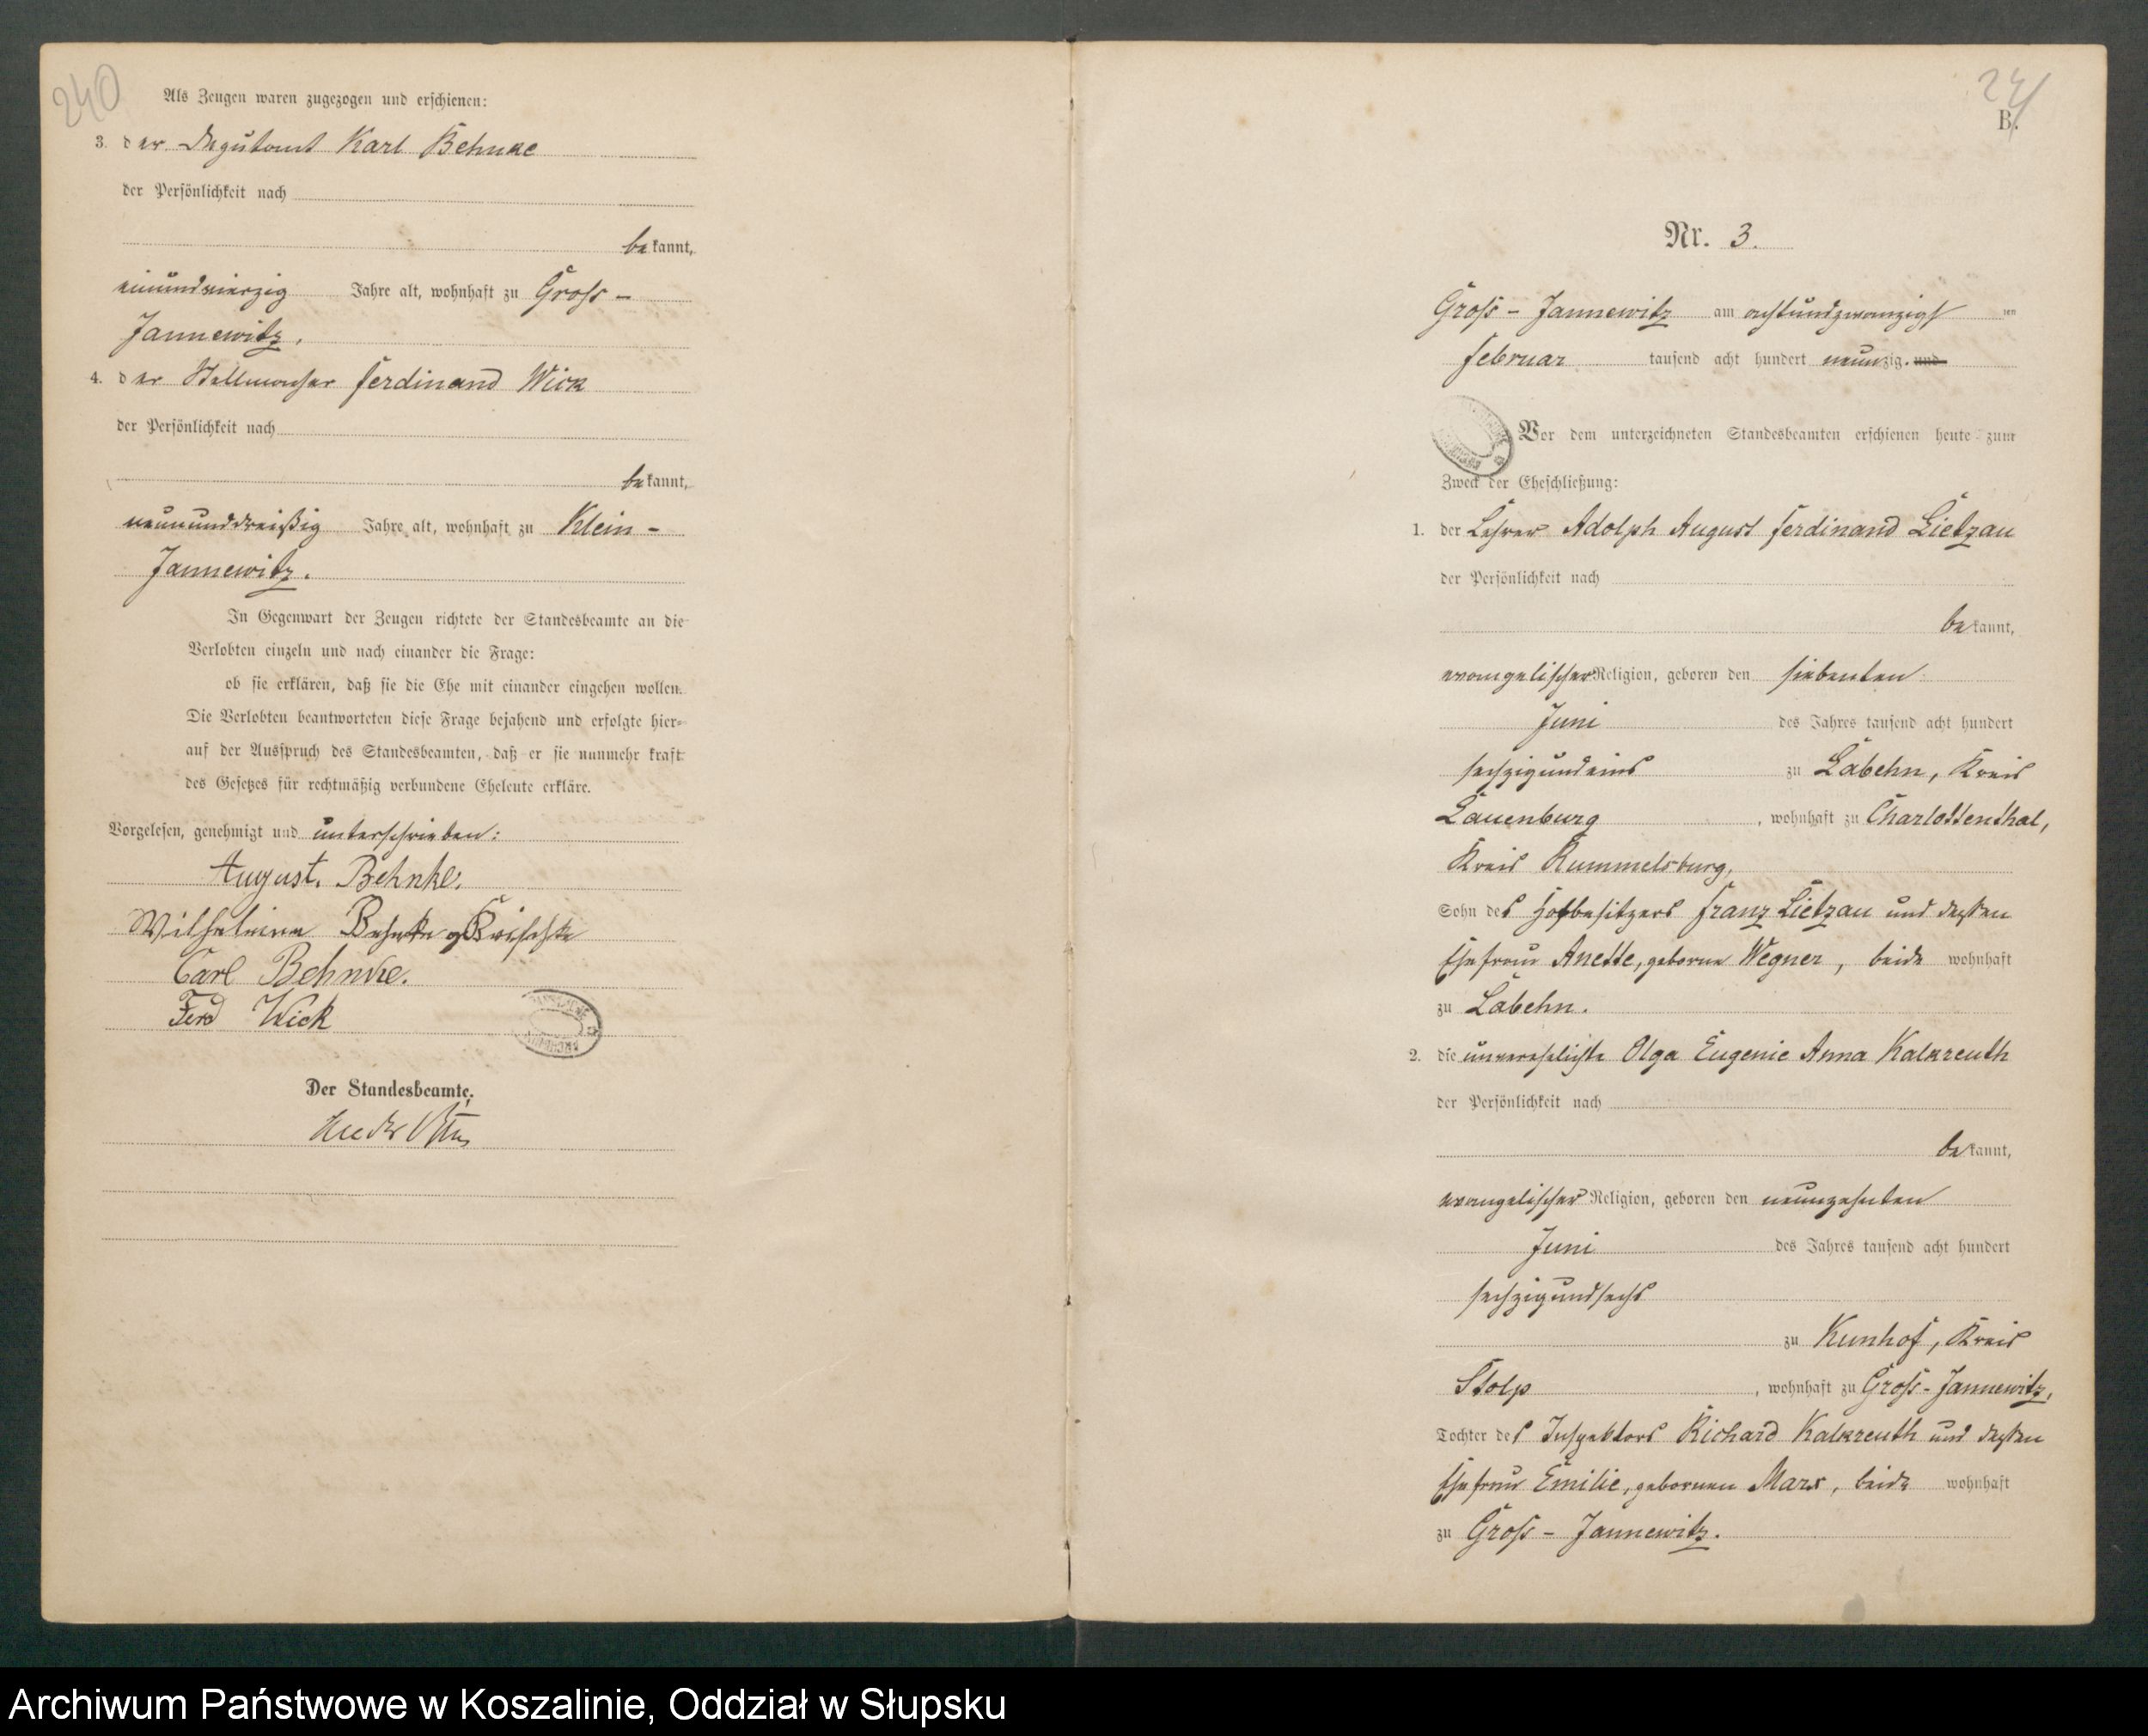 240
Als Zeugen waren zugezogen und erschienen:
3. der Deputant Karl Behnke
der Persönlichkeit nach
bekannt,
einundvierzig Jahre alt, wohnhaft zu Groß-
Jannewitz.
4. der Stellmacher Ferdinand Wick
der Persönlichkeit nach
bekannt,
neununddreißig Jahre alt, wohnhaft zu Klein-
Jannewitz.
In Gegenwart der Zeugen richtete der Standesbeamte an die
Verlobten einzeln und nach einander die Frage:
ob sie erklären, daß sie die Ehe mit einander eingehen wollen.
Die Verlobten beantworteten diese Frage bejahend und erfolgte hier-
auf der Ausspruch des Standesbeamten, daß er sie nunmehr kraft
des Gesetzes für rechtmäßig verbundene Eheleute erkläre.
Vorgelesen, genehmigt und unterschrieben:
August. Behnke.
Wilhelmine Behnke
Carl Behnke.
Ferd Wick
Der Standesbeamte.
241
B.
Nr. 3.
Groß-Jannewitz am achtundzwanzigsten
Februar tausend acht hundert neunzig. und
Vor dem unterzeichneten Standesbeamten erschienen heute zum
Zweck der Eheschließung:
1. der Lehrer Adolph August Ferdinand Lietzau
der Persönlichkeit nach
bekannt,
evangelischer Religion, geboren den siebenten
Juni des Jahres tausend acht hundert
sechzigundeins zu Labehn, Kreis
Lauenburg, wohnhaft zu Charlottenthal,
Kreis Rummelsburg,
Sohn des Hofbesitzers Franz Lietzau und dessen
Ehefrau Anette, geborne Wegner, beide wohnhaft
zu Labehn.
2. die unverehelichte Olga Eugenie Anna Kalkreuth
der Persönlichkeit nach
bekannt,
evangelischer Religion, geboren den neunzehnten
Juni des Jahres tausend acht hundert
sechzigundsechs
zu Kunhof, Kreis
Stolp, wohnhaft zu Groß-Jannewitz,
Tochter des Inspektors Richard Kalkreuth und dessen
Ehefrau Emilie, gebornen Marx, beide wohnhaft
zu Groß-Jannewitz.
Archiwum Państwowe w Koszalinie, Oddział w Słupsku